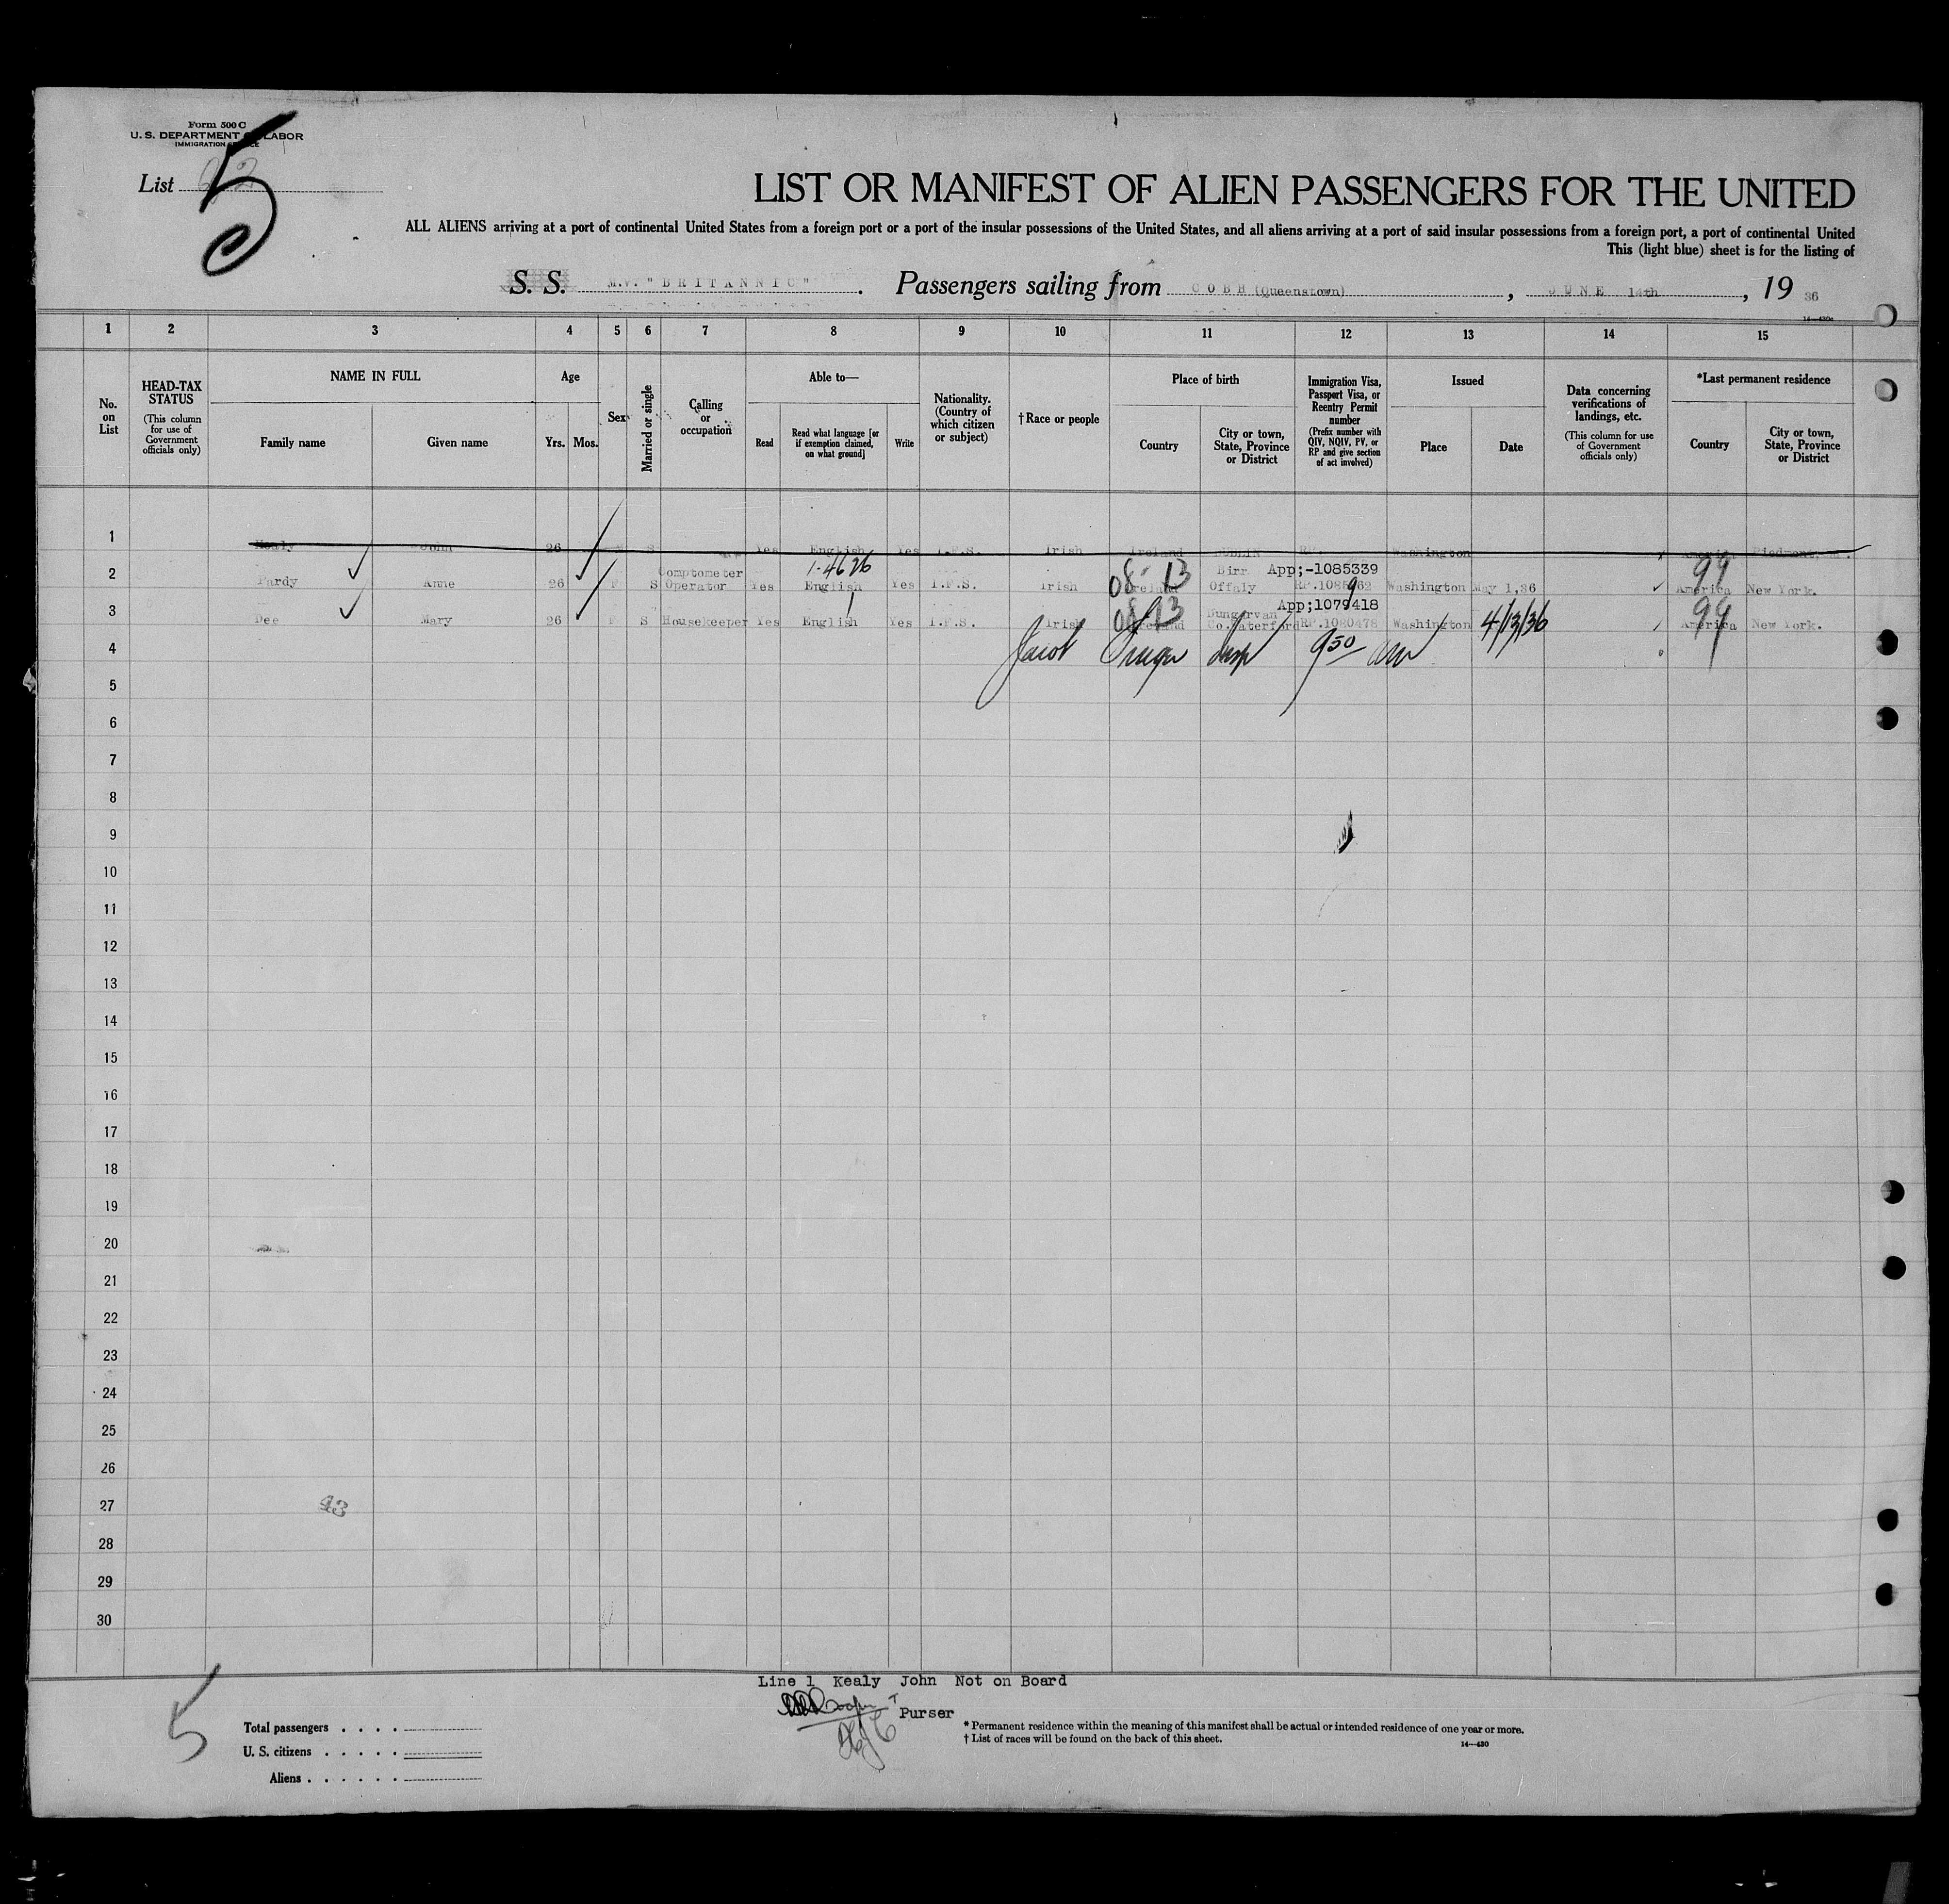 Form 500 C
U. S. DEPARTMENT OF LABOR
IMMIGRATION SERVICE
List 5
LIST OR MANIFEST OF ALIEN PASSENGERS FOR THE UNITED
ALL ALIENS arriving at a port of continental United States from a foreign port or a port of the insular possessions of the United States, and all aliens arriving at a port of said insular possessions from a foreign port, a port of continental United
This (light blue) sheet is for the listing of
S. S. M.V. "BRITANNIC". Passengers sailing from COBH (Queenstown), JUNE 14th, 1936
14—430c
1 2 3 4 5 6 7 8 9 10 11 12 13 14 15
No. on List
HEAD-TAX STATUS (This column for use of Government officials only)
NAME IN FULL Family name Given name
Age Yrs. Mos.
Sex
Married or single
Calling or occupation
Able to— Read Read what language [or if exemption claimed, on what ground] Write
Nationality. (Country of which citizen or subject)
† Race or people
Place of birth Country City or town, State, Province or District
Immigration Visa, Passport Visa, or Reentry Permit number (Prefix number with QIV, NQIV, PV, or RP and give section of act involved)
Issued Place Date
Data concerning verifications of landings, etc. (This column for use of Government officials only)
*Last permanent residence Country City or town, State, Province or District
1 Kealy John 26 S Yes English Yes I.F.S. Irish Ireland DUBLIN RP. Washington America Piedmont
1-4626
2 Pardy Anne 26 F S Comptometer Operator Yes English Yes I.F.S. Irish 08 13 Ireland Birr Offaly App;-1085339 Washington May 1,36 99 America New York.
3 Dee Mary 26 F S Housekeeper Yes English Yes I.F.S. Irish 08 13 Ireland Dungarvan Co.Waterford App;1079418 RP.1080478 Washington 4/13/36 99 America New York.
4 Jacob insp 9 50 am
5
6
7
8
9
10
11
12
13
14
15
16
17
18
19
20
21
22
23
24
25
26
27 43
28
29
30
Line 1 Kealy John Not on Board
Purser
5
Total passengers . . . .
U. S. citizens . . . . .
Aliens . . . . . .
* Permanent residence within the meaning of this manifest shall be actual or intended residence of one year or more.
† List of races will be found on the back of this sheet.
14—430